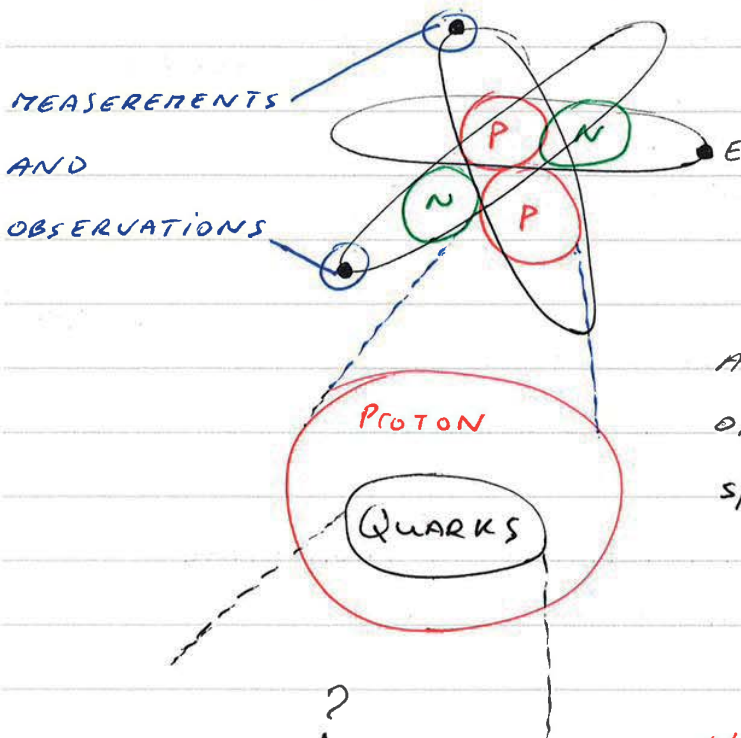 MEASEREMENTS
AND
OBSERVATIONS
P
N
N
P
E
PROTON
QUARKS
?